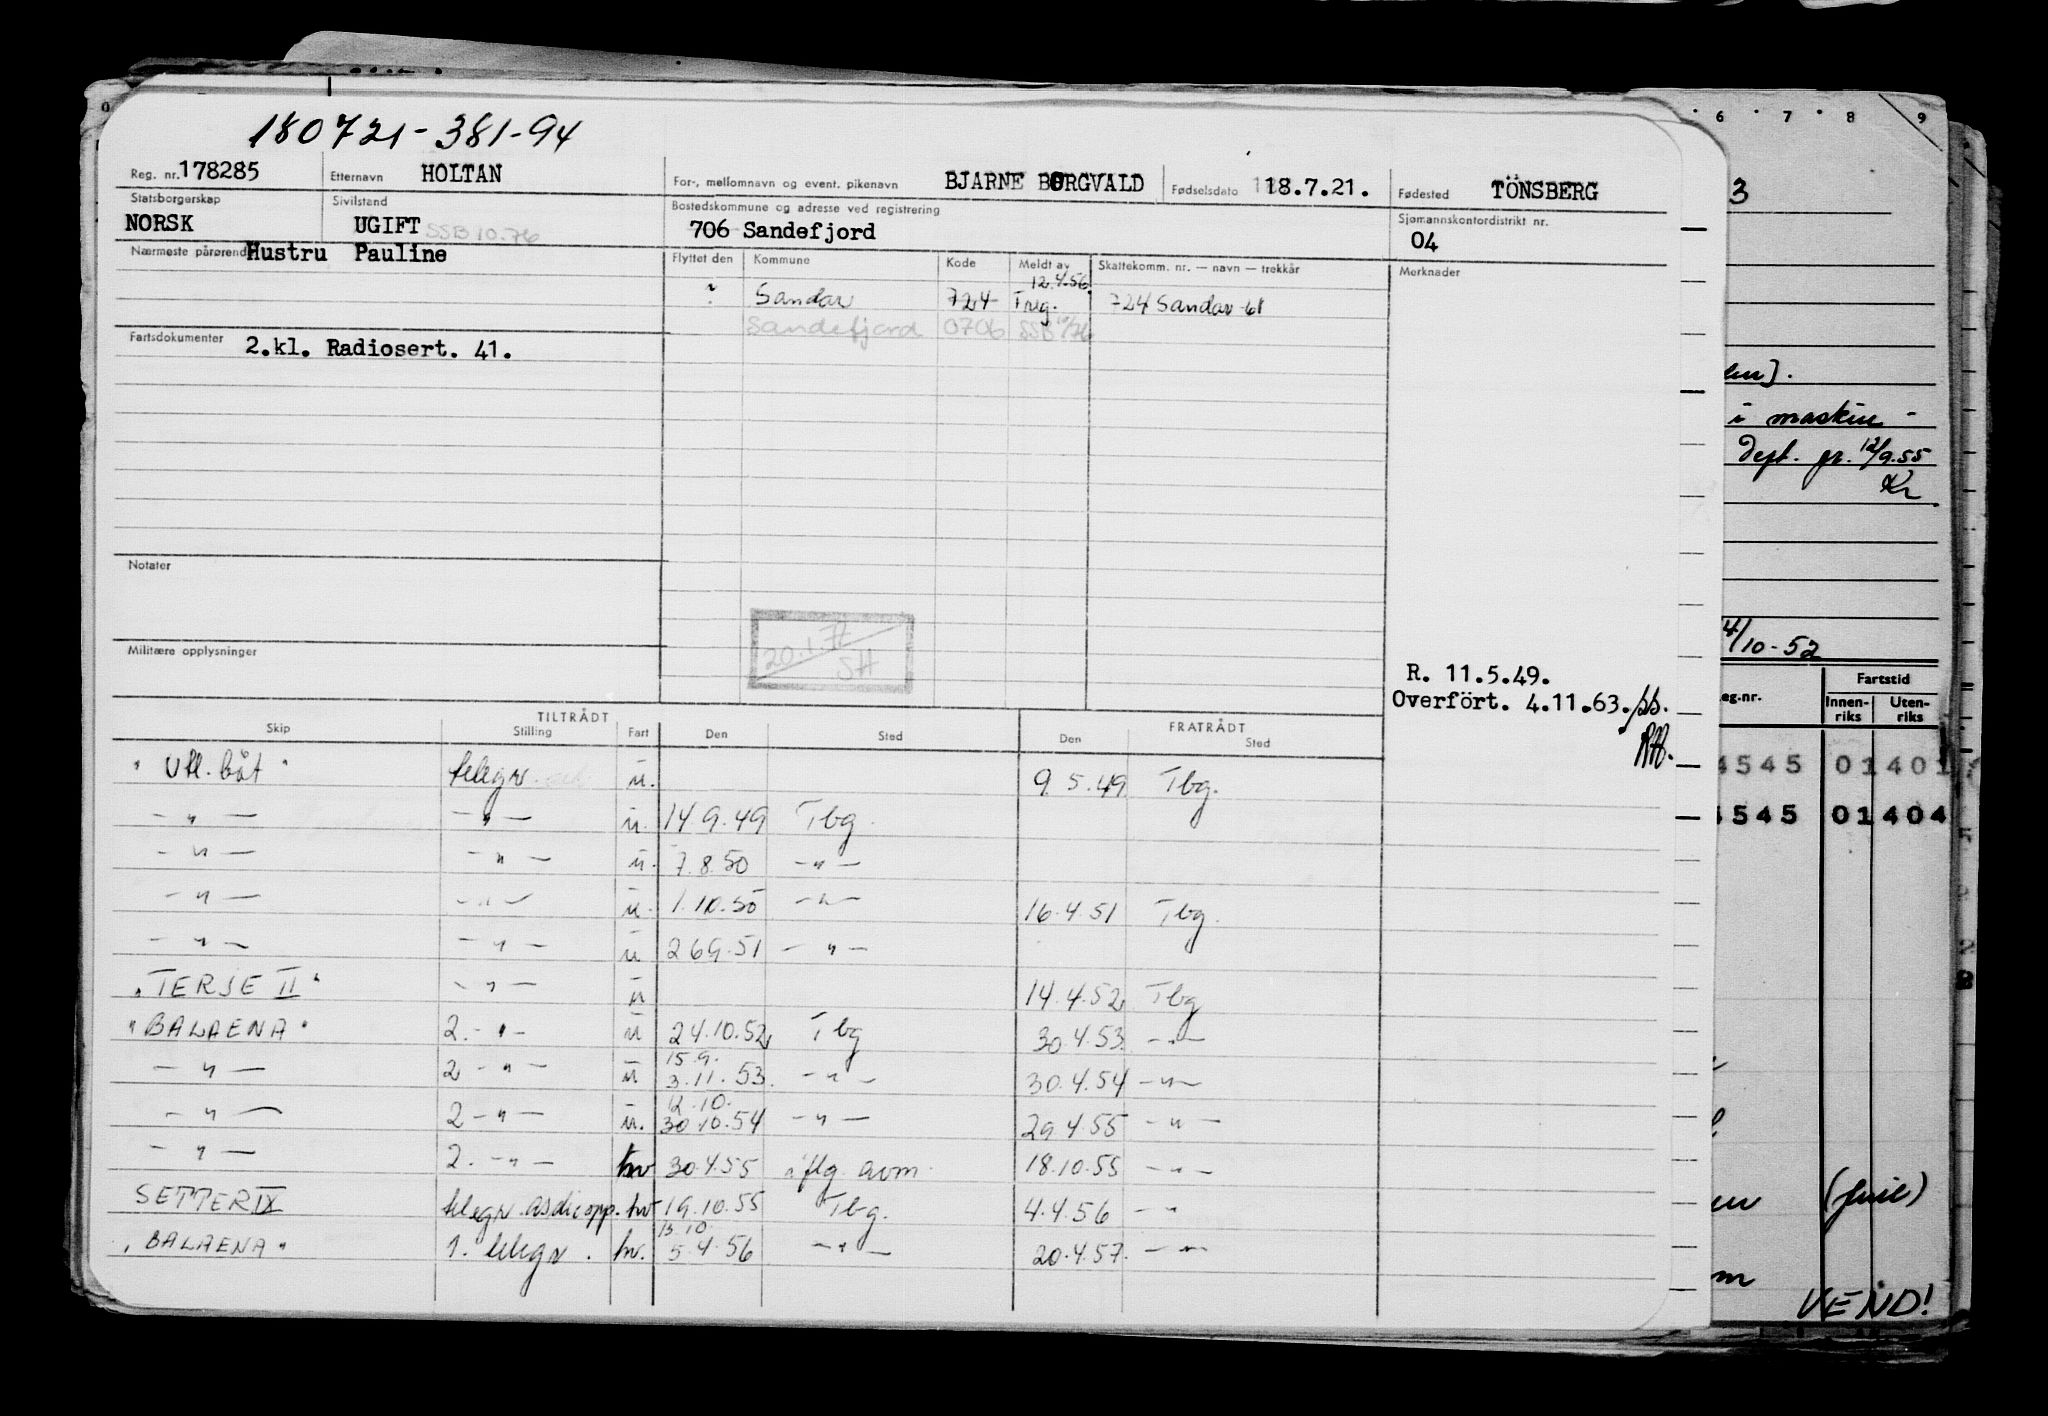 180721-381-94
Reg. nr. 178285 Etternavn HOLTAN For-, mellomnavn og event. pikenavn BJARNE BORGVALD Fødselsdato 18.7.21. Fødested TÖNSBERG
Statsborgerskap NORSK Sivilstand UGIFT SSB 10.76 Bostedskommune og adresse ved registrering 706 Sandefjord Sjømannskontordistrikt nr. 04
Nærmeste pårørende Hustru Pauline Flyttet den Kommune Kode Meldt av Skattekomm. nr. — navn — trekkår Merknader
12.4.56.
? Sandar 724 Treg. 724 Sandar 61
Sandefjord 0706 SSB 10/76
Fartsdokumenter 2.kl. Radiosert. 41.
Notater
20.1.77
SH
Militære opplysninger
R. 11.5.49.
Overfört. 4.11.63./ss.
TILTRÅDT FRATRÅDT
Skip Stilling Fart Den Sted Den Sted
" Utl. båt " telegr. u. 9.5.49 Tbg.
— " — — " — u. 14 9.49 Tbg.
— " — — " — u. 7.8.50 — " —
— " — — " — u. 1.10.50 — " — 16.4.51 Tbg.
— " — — " — u 26 9.51 — " —
"TERJE II" — " — u 14.4.52 Tbg
"BALAENA" 2. - " - u 24.10.52 Tbg 30.4.53 — " —
15.9.
— " — 2 - " — u 3.11.53. — " — 30.4.54 — " —
12.10.
— " — 2 - " — u. 30.10.54 — " — 29.4.55 — " —
— " — 2. - " — hv 30.4.55 iflg. avm. 18.10.55 — " —
SETTER IX telegr. asdicopp. hv 19.10.55 Tbg. 4.4.56 — "
13.10
"BALAENA" 1. telegr. hv. 5.4.56 — " — 20.4.57. — " —
6 7 8 9
3
i maskin -
Dept. gr. 12/9.55
Kr
4/10-52
eg.nr. Fartstid
Innen-riks Uten-riks
4545 01 401
4545 01 404
VEND!